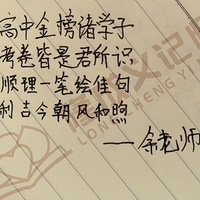 高中金榜诸学子
考卷皆是君所识
顺理一笔绘佳句
利吉今朝风和煦
——余老师